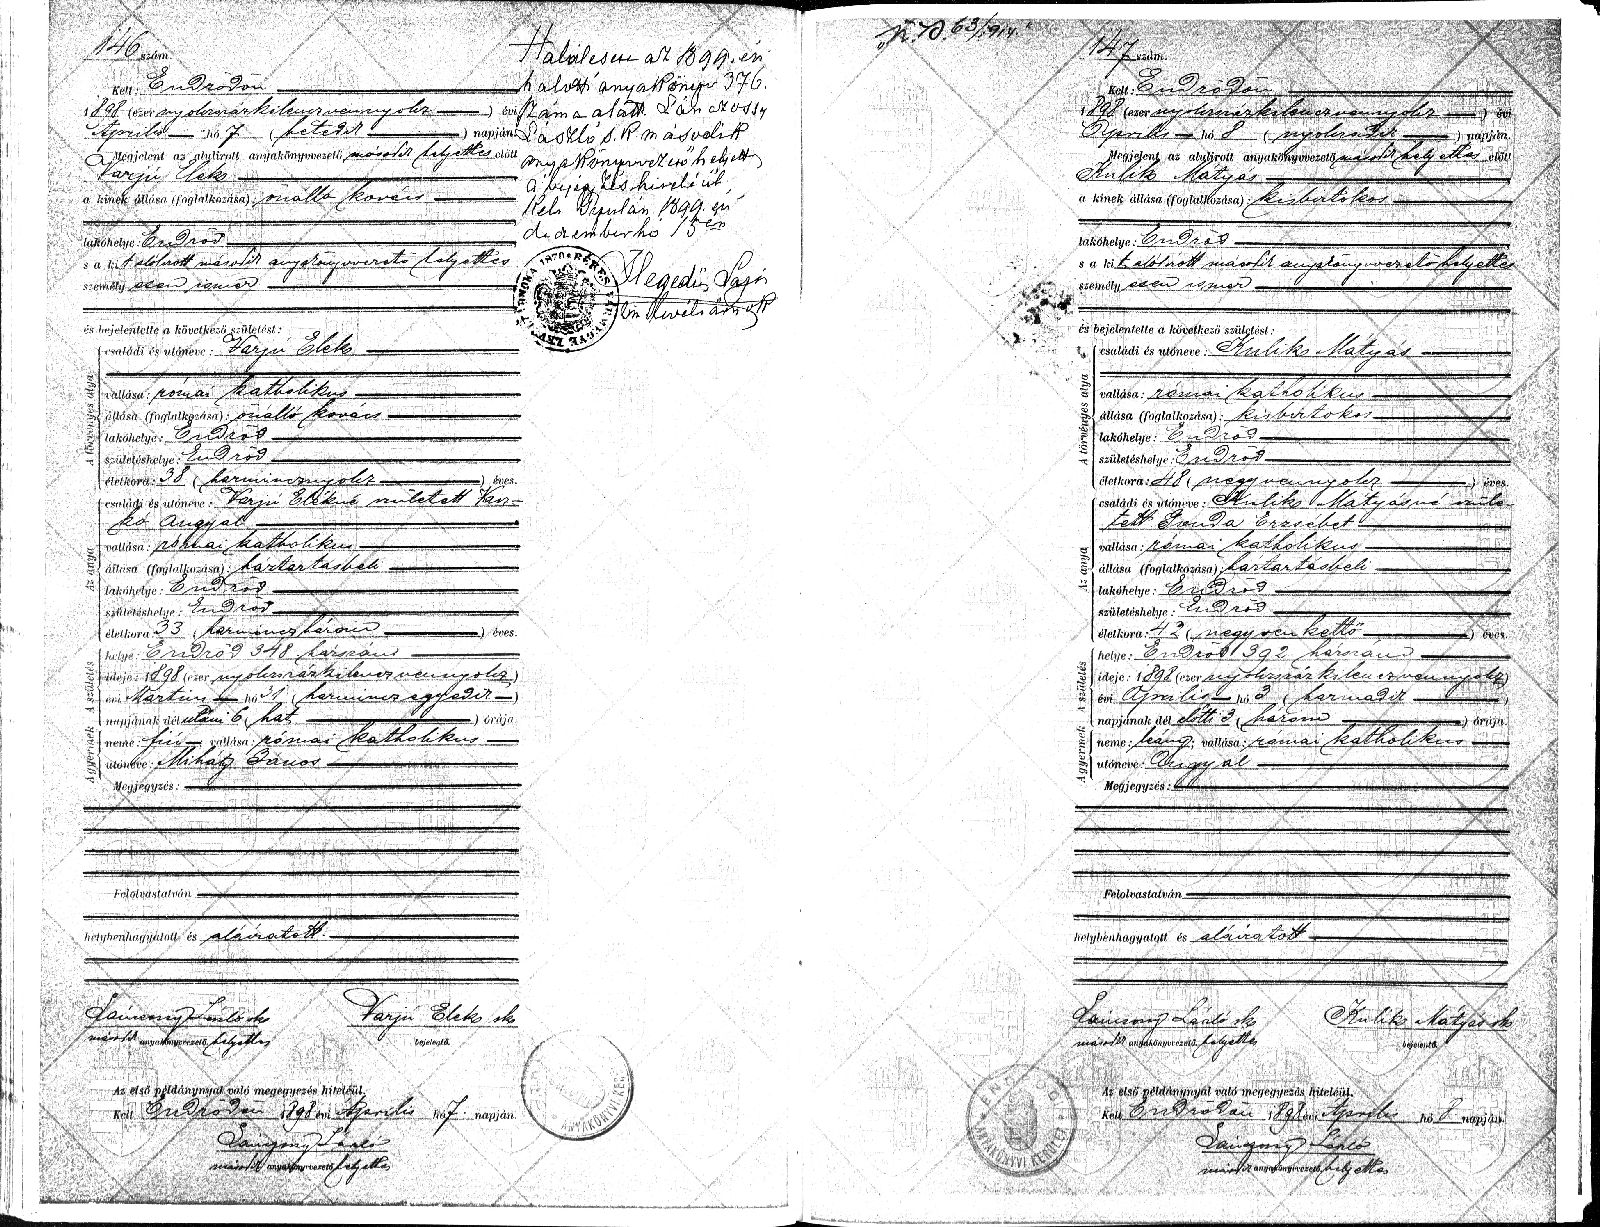 146 szám.
Kelt: Endrődön
1898 (ezer nyolczszázkilenczvennyolcz) évi
Április hó 7 (hetedik) napján
Megjelent az alulirott anyakönyvvezető második helyettes előtt
Varjú Elek
a kinek állása (foglalkozása): önálló kovács
lakóhelye: Endrőd
s a kit alólirott második anyakönyvvezető helyettes
személyesen ismer
és bejelentette a következő születést:
A törvényes atya
családi és utóneve: Varjú Elek
vallása: római katholikus
állása (foglalkozása): önálló kovács
lakóhelye: Endrőd
születéshelye: Endrőd
életkora: 38 (harmincznyolcz) éves.
Az anya
családi és utóneve: Varjú Elekné született
Angyal
vallása: római katholikus
állása (foglalkozása): háztartásbeli
lakóhelye: Endrőd
születéshelye: Endrőd
életkora 33 (harminczhárom) éves.
A születés
helye: Endrőd 348 házszám
ideje: 1898 (ezer nyolczszázkilenczvennyolcz)
évi Martius hó 31 (harminczegyedik)
napjának délutáni 6 (hat) órája
A gyermek
neme: fiú vallása: római katholikus
utóneve: Mihály János
Megjegyzés:
Felolvastatván
helybenhagyatott és aláiratott.
László sk
második anyakönyvvezető helyettes
Varjú Elek sk
bejelentő.
Az első példánynyal való megegyezés hiteléül.
Kelt Endrődön 1898 évi Április hó 7. napján.
László
második anyakönyvvezető helyettes
Halálesete az 1899. évi
halotti anyakönyv 376.
száma alatt.
László s.k. második
anyakönyvvezető helyettes
a bejegyzés hiteléül,
Kelt Gyulán 1899. évi
deczember hó 15én
Hegedűs Lajos
levéltárnok
ANYAKÖNYVI KER
K. D. 63/1914.
147 szám.
Kelt: Endrődön
1898 (ezer nyolczszázkilenczvennyolcz) évi
Április hó 8 (nyolczadik) napján.
Megjelent az alulirott anyakönyvvezető második helyettes előtt
Kulik Mátyás
a kinek állása (foglalkozása): kisbirtokos
lakóhelye: Endrőd
s a kit alólirott második anyakönyvvezető helyettes
személyesen ismer
és bejelentette a következő születést:
A törvényes atya
családi és utóneve: Kulik Mátyás
vallása: római katholikus
állása (foglalkozása): kisbirtokos
lakóhelye: Endrőd
születéshelye: Endrőd
életkora: 48 (negyvennyolcz) éves.
Az anya
családi és utóneve: Kulik Mátyásné szüle-
tett Gonda Erzsébet
vallása: római katholikus
állása (foglalkozása): háztartásbeli
lakóhelye: Endrőd
születéshelye: Endrőd
életkora: 42 (negyvenkettő) éves.
A születés
helye: Endrőd 392 házszám
ideje: 1898 (ezer nyolczszázkilenczvennyolcz)
évi Április hó 3 (harmadik)
napjának dél előtti 3 (három) órája.
A gyermek
neme: leány, vallása: római katholikus
utóneve: Angyal
Megjegyzés:
Felolvastatván
helybenhagyatott és aláiratott
László sk
második anyakönyvvezető helyettes
Kulik Mátyás sk
bejelentő.
Az első példánynyal való megegyezés hiteléül.
Kelt Endrődön 1898 évi Április hó 8. napján.
László
második anyakönyvvezető helyettes
ANYAKÖNYVI KERÜLET